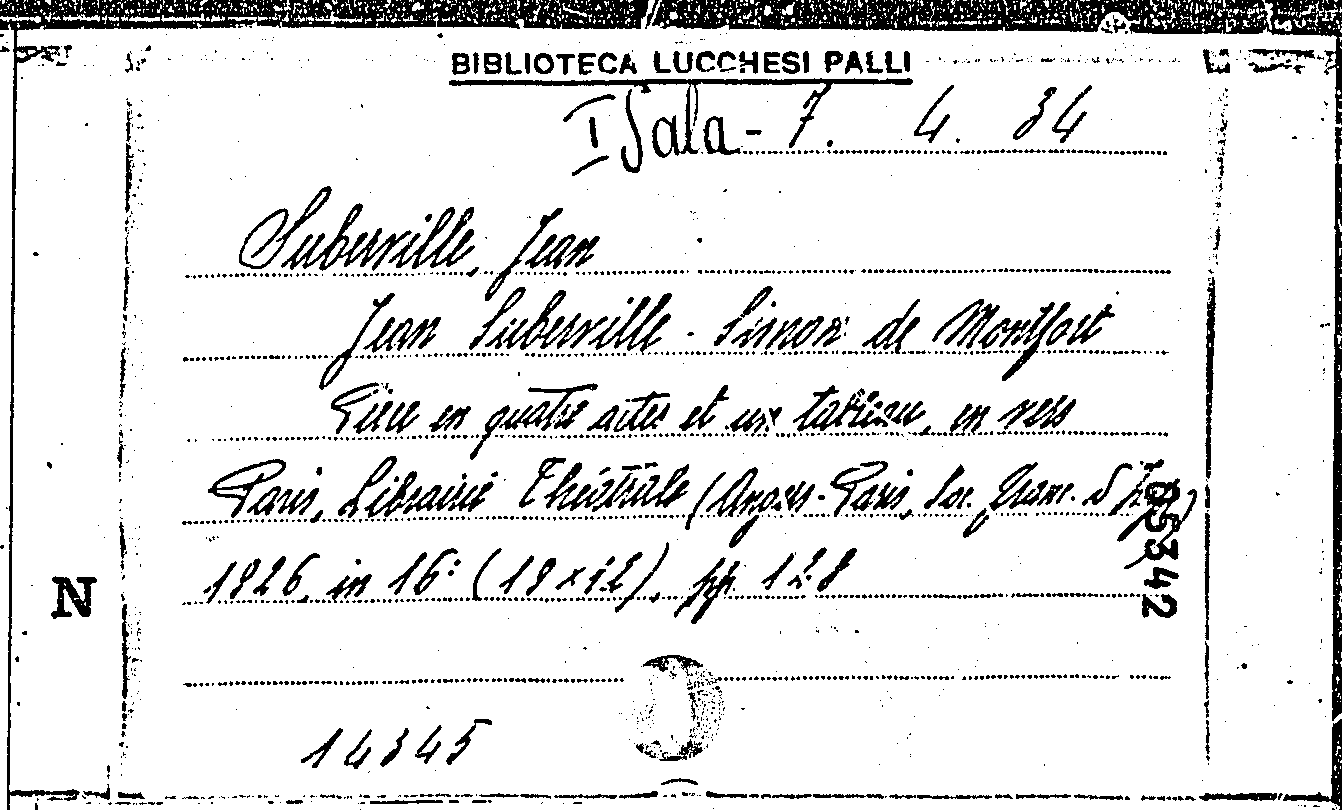 BIBLIOTECA LUCCHESI PALLI
I Sala - 7. 4. 34
Suberville, Jean
Jean Suberville - Simon de Montfort
Pièce en quatre actes et un tableau, en vers
Paris, Librairie Théâtrale (Angers-Paris, Soc. Franc. d'Impr.)
1926, in 16° (19×12), pp. 128
053342
N
14345